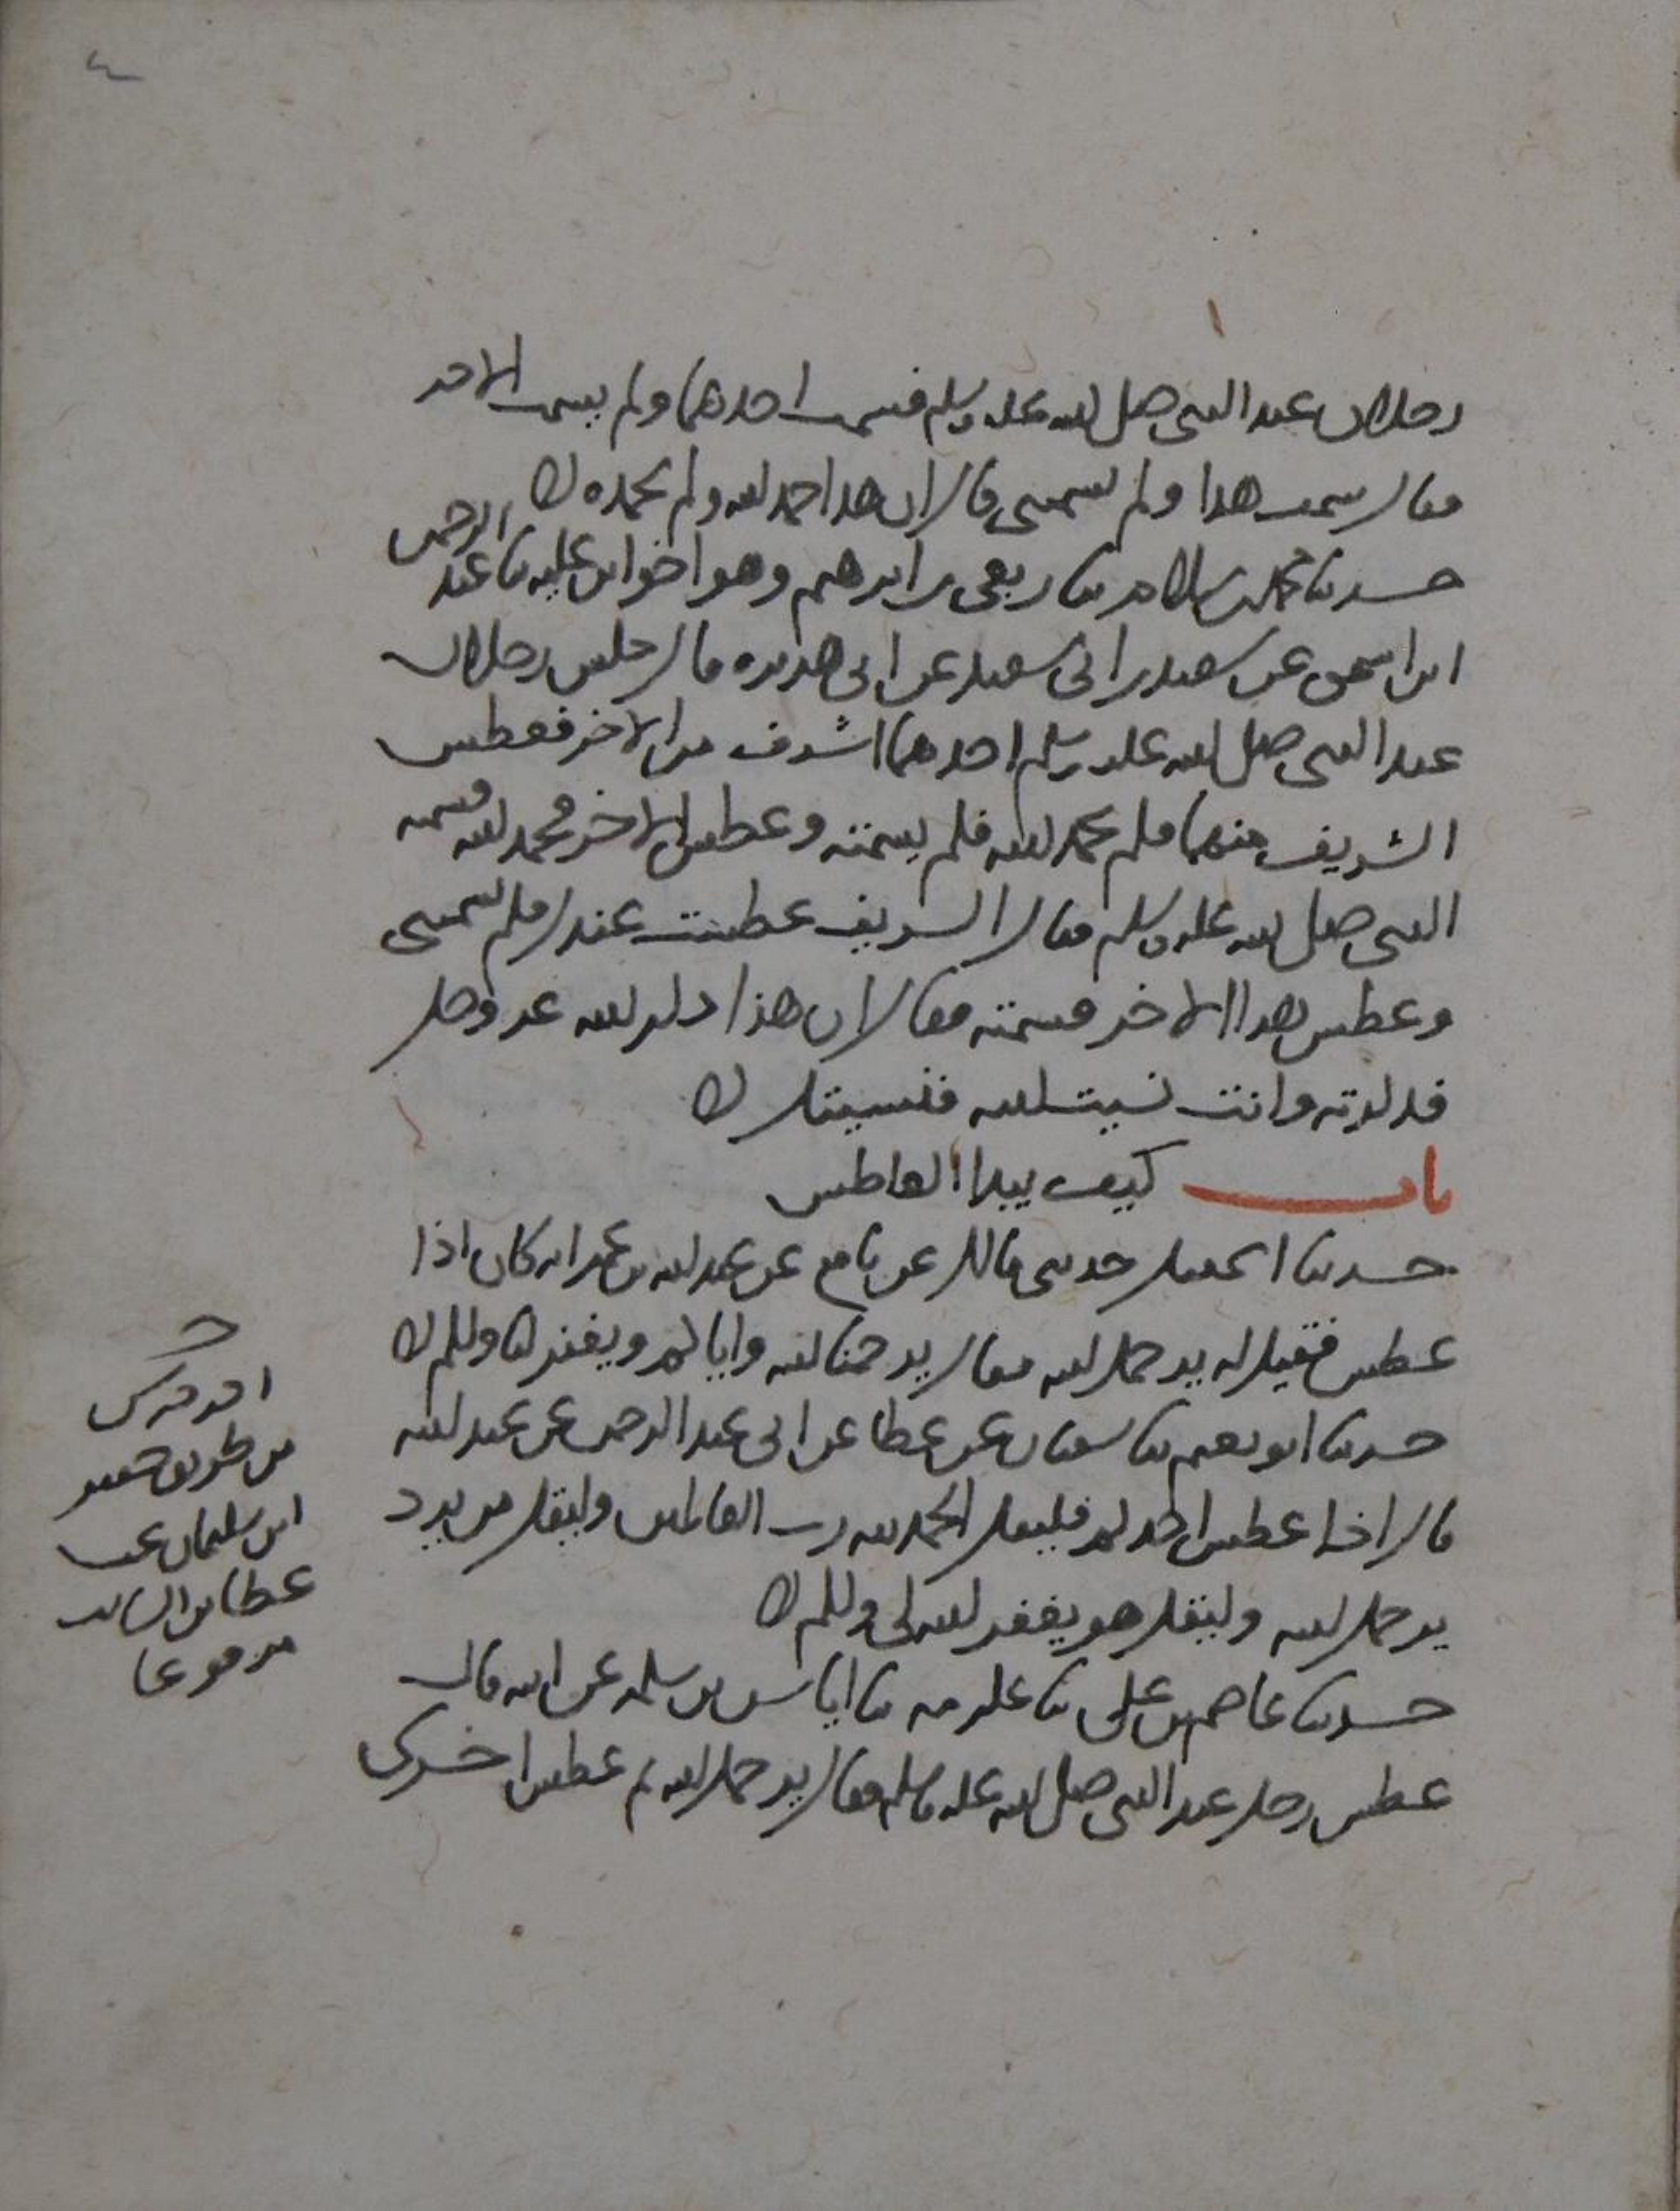 رجلان عند النبي صلى الله عليه وسلم فشمت احدهما ولم يشمت الاخر
فقال شمت هذا ولم تشمتني قال ان هذا حمد الله ولم تحمده
حدثنا محمد بن سلام ثنا ربعي بن ابراهيم وهو اخو ابن علية ثنا عبد الرحمن
ابن اسحق عن سعيد بن ابي سعيد عن ابي هريرة قال جلس رجلان
عند النبي صلى الله عليه وسلم احدهما اشرف من الاخر فعطس
الشريف منهما فلم يحمد الله فلم يشمته وعطس الاخر فحمد الله فشمته
النبي صلى الله عليه وسلم فقال الشريف عطست عندك فلم تشمتني
وعطس هذا الاخر فشمته فقال ان هذا ذكر الله عز وجل
فذكرته وانت نسيت الله فنسيتك
باب كيف يبدا العاطس
حدثنا اسمعيل حدثني مالك عن نافع عن عبد الله بن عمر انه كان اذا
عطس فقيل له يرحمك الله فقال يرحمنا الله واياكم ويغفر لنا ولكم
حدثنا ابو نعيم ثنا سفيان عن عطا عن ابي عبد الرحمن عن عبد الله
قال اذا عطس احدكم فليقل الحمد لله رب العالمين وليقل من يرد
يرحمك الله وليقل هو يغفر الله لي ولكم
حدثنا عاصم بن علي ثنا عكرمه ثنا اياس بن سلمه عن ابيه قال
عطس رجل عند النبي صلى الله عليه وسلم فقال يرحمك الله ثم عطس اخرى
من طريق جعفر
ابن سليمان عن
عطا بن السايب
مرفوعا